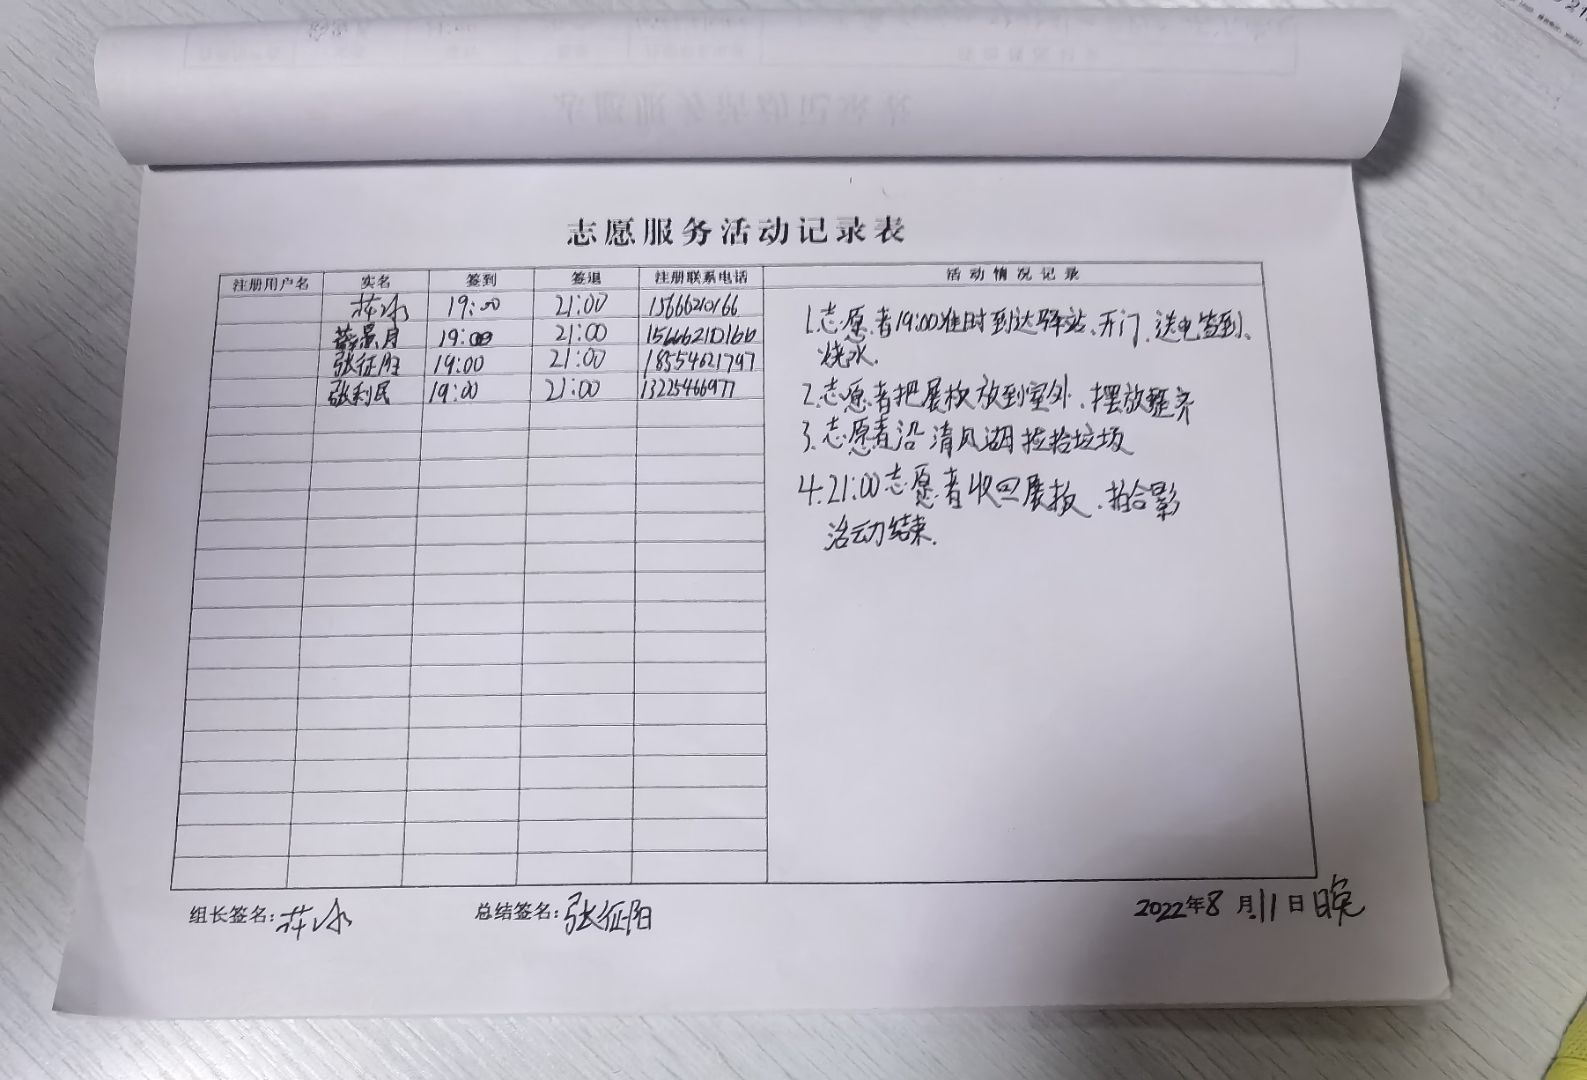 志愿服务活动记录表
注册用户名 实名 签到 签退 注册联系电话 活动情况记录
19:00 21:00 15666210166
19:00 21:00 15666210166
张征阳 19:00 21:00 18554621797
张利民 19:00 21:00 1322546977
1.志愿者19:00准时到达驿站、开门、送电签到、
烧水.
2.志愿者把展板放到室外、摆放整齐
3.志愿者沿清风湖捡拾垃圾
4.21:00志愿者收回展板、拍合影
活动结束.
组长签名: 总结签名:张征阳 2022年8月11日晚